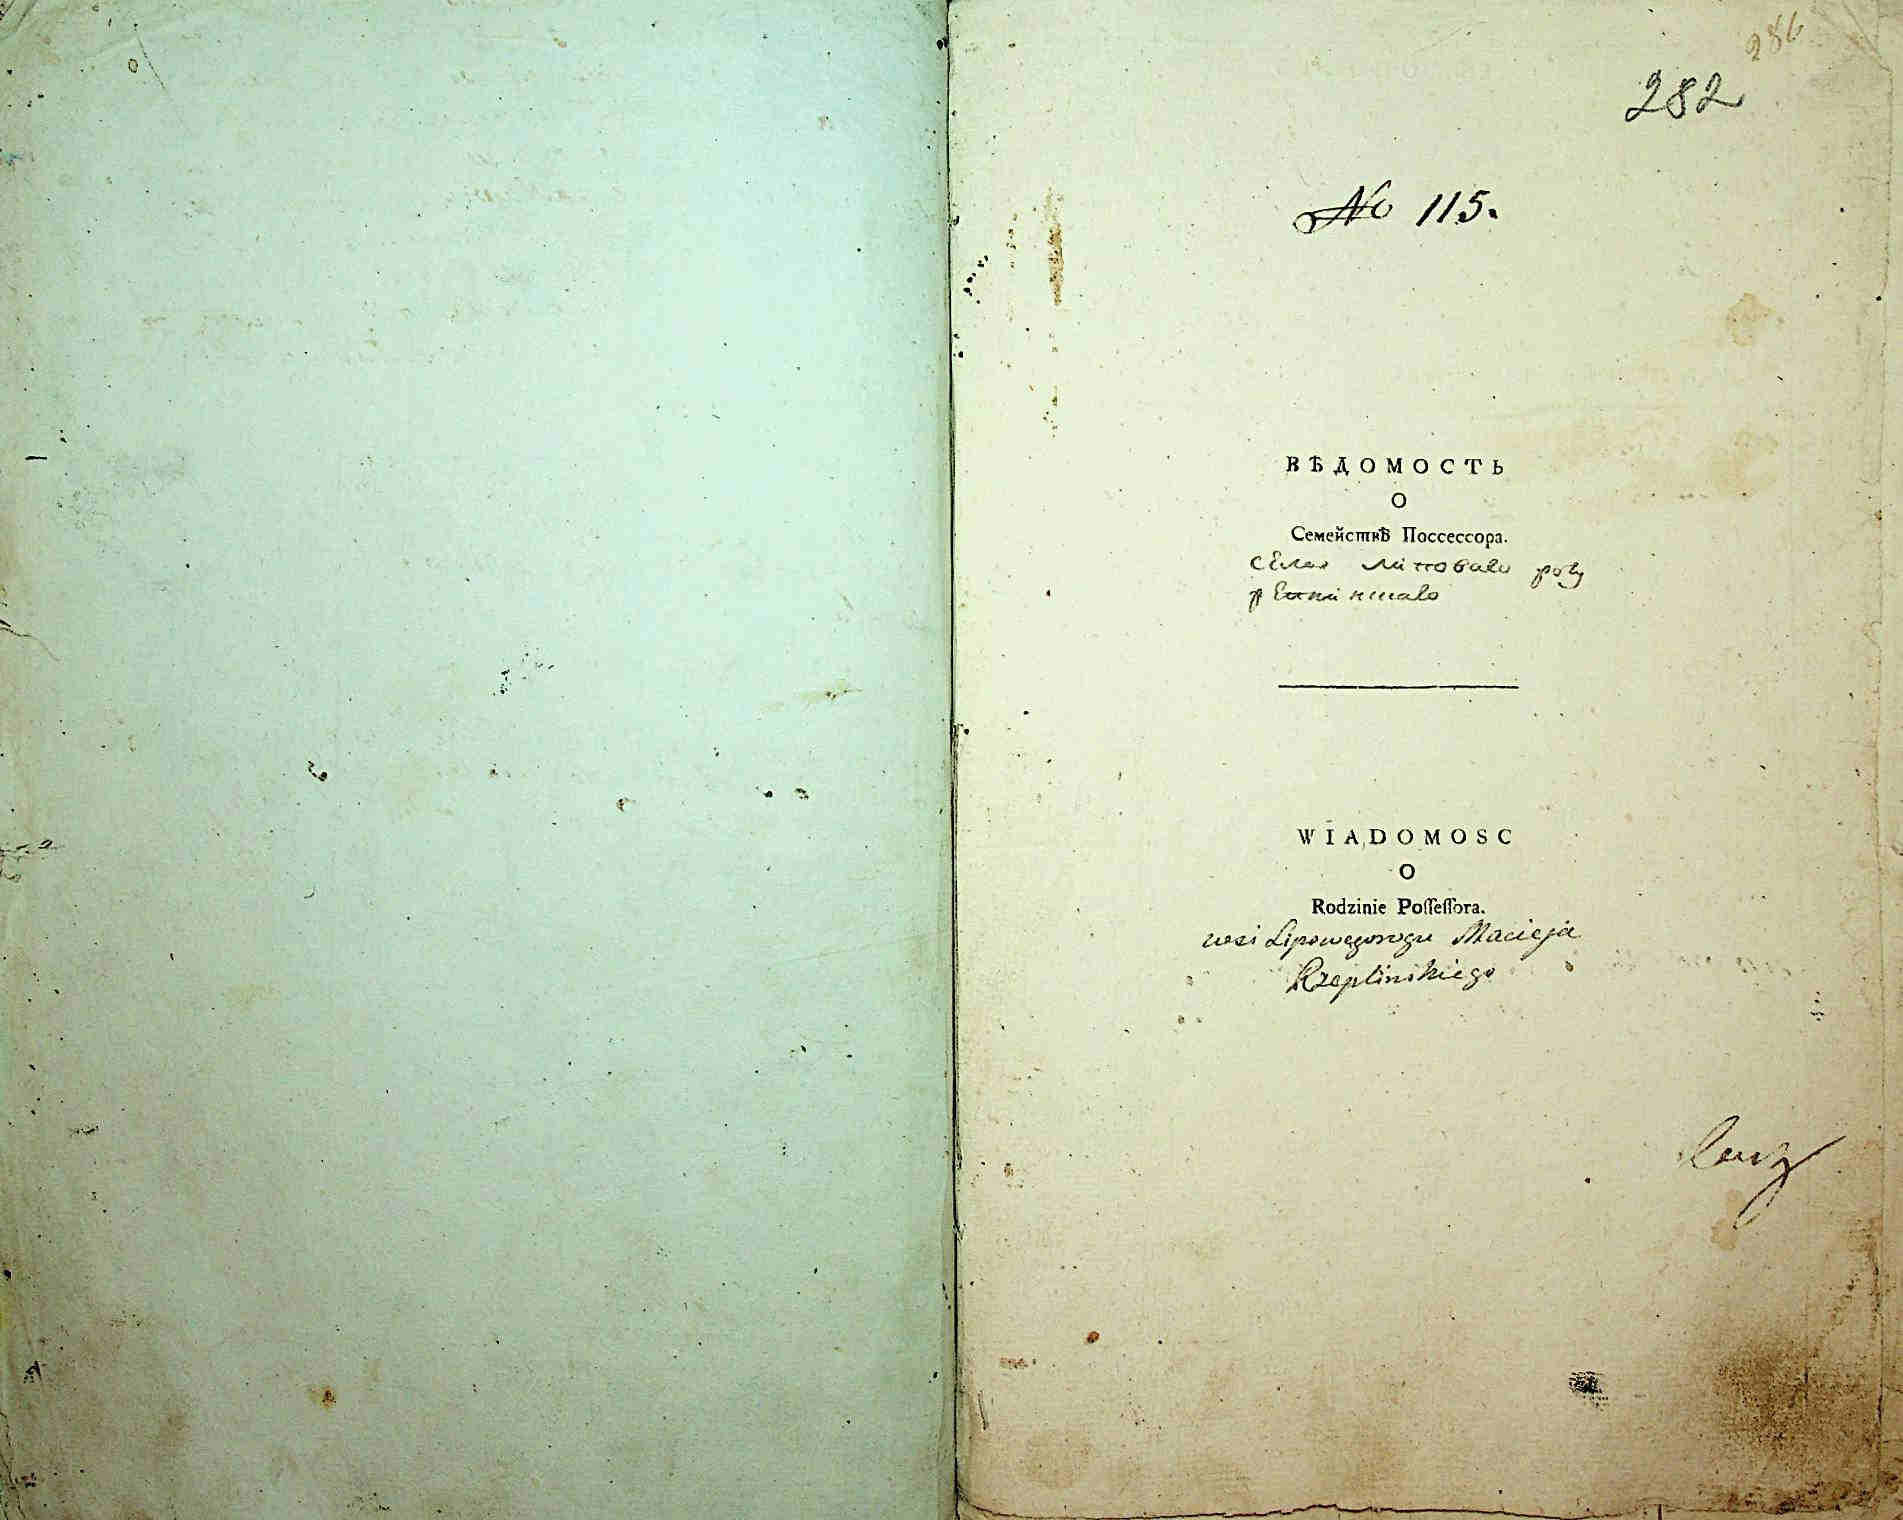 286
282
No 115.
ВѢДОМОСТЬ
О
Семействѣ Поссессора.
села Липоваго рогу
WIADOMOSC
O
Rodzinie Poſſeſſora.
wsi Lipowegorogu Macieja
Rzeplinskiego